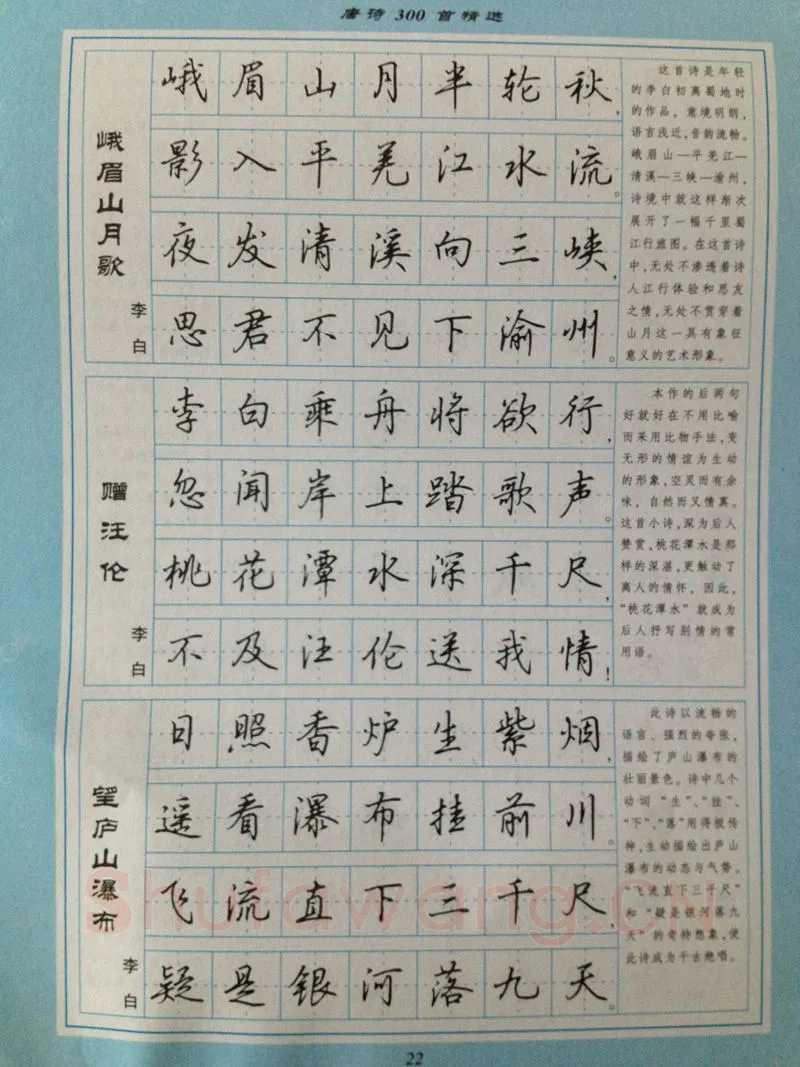 唐诗 300 首精选
峨眉山月歌
李白
峨眉山月半轮秋，
影入平羌江水流。
夜发清溪向三峡，
思君不见下渝州。
这首诗是年轻
的李白初离蜀地时
的作品，意境明朗，
语言浅近，音韵流畅。
峨眉山—平羌江—
清溪—三峡—渝州，
诗境中就这样渐次
展开了一幅千里蜀
江行旅图。在这首诗
中，无处不渗透着诗
人江行体验和思友
之情，无处不贯穿着
山月这一具有象征
意义的艺术形象。
赠汪伦
李白
李白乘舟将欲行，
忽闻岸上踏歌声。
桃花潭水深千尺，
不及汪伦送我情！
本作的后两句
好就好在不用比喻
而采用比物手法，变
无形的情谊为生动
的形象，空灵而有余
味，自然而又情真。
这首小诗，深为后人
赞赏，桃花潭水是那
样的深湛，更触动了
离人的情怀，因此，
“桃花潭水”就成为
后人抒写别情的常
用语。
望庐山瀑布
李白
日照香炉生紫烟，
遥看瀑布挂前川。
飞流直下三千尺，
疑是银河落九天。
此诗以流畅的
语言、强烈的夸张，
描绘了庐山瀑布的
壮丽景色。诗中几个
动词“生”、“挂”、
“下”、“落”用得极传
神，生动描绘出庐山
瀑布的动态与气势。
“飞流直下三千尺”
和“疑是银河落九
天”的奇特想象，使
此诗成为千古绝唱。
shufawang.cn
22